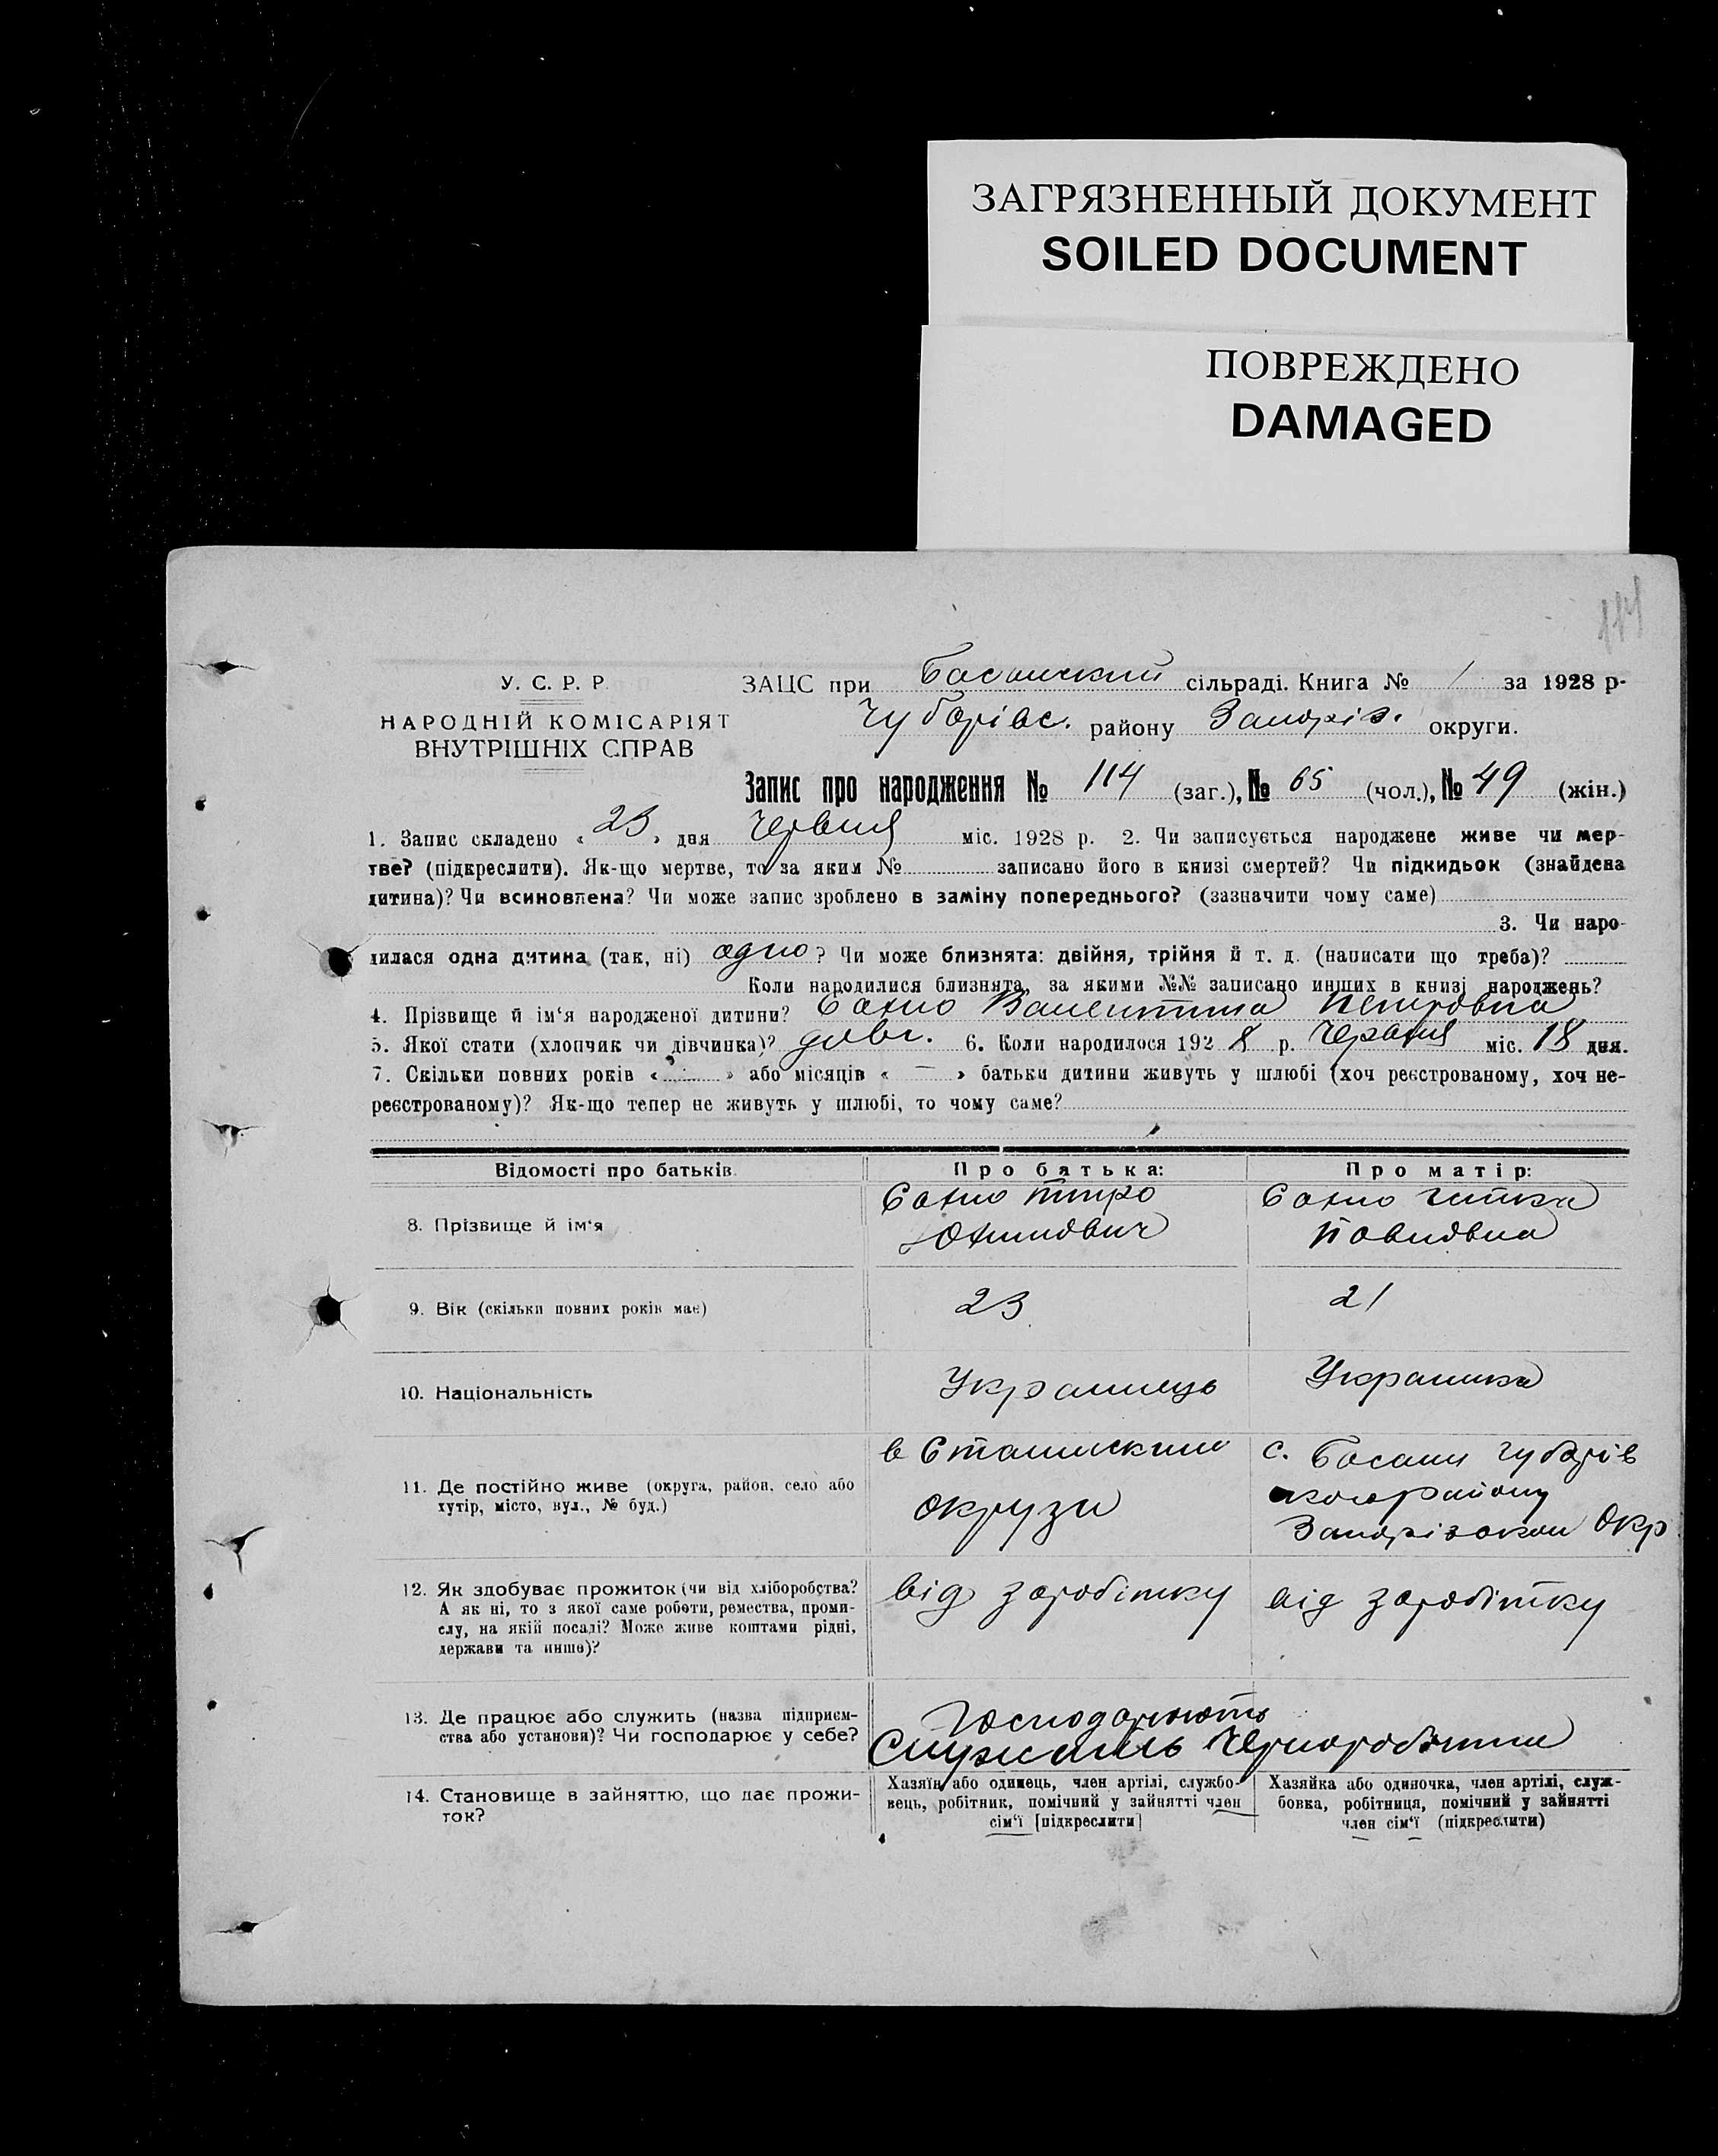 ЗАГРЯЗНЕННЫЙ ДОКУМЕНТ
SOILED DOCUMENT
ПОВРЕЖДЕНО
DAMAGED
114
У. С. Р. Р.
НАРОДНІЙ КОМІСАРІЯТ
ВНУТРІШНІХ СПРАВ
ЗАЦС при Басанский сільраді. Книга № 1 за 1928 р.
Чубарівс. району Запоріз. округи.
Запис про народження № 114 (заг.), № 65 (чол.), № 49 (жін.)
1. Запис складено « 23 » дня Червня міс. 1928 р. 2. Чи записується народжене живе чи мер-
тве? (підкреслити). Як-що мертве, то за яким № записано його в книзі смертей? Чи підкидьок (знайдена
дитина)? Чи всиновлена? Чи може запис зроблено в заміну попереднього? (зазначити чому саме)
3. Чи наро-
дилася одна дитина (так, ні) одно? Чи може близнята: двійня, трійня й т. д. (написати що треба)?
Коли народилися близнята, за якими №№ записано инших в книзі народжень?
4. Прізвище й ім'я народженої дитини? Валентина Петровна
5. Якої стати (хлопчик чи дівчинка)? дівч. 6. Коли народилося 1928 р. Червня міс. 18 дня.
7. Скільки повних років « — » або місяців « — » батьки дитини живуть у шлюбі (хоч реєстрованому, хоч не-
реєстрованому)? Як-що тепер не живуть у шлюбі, то чому саме?
Відомості про батьків
Про батька:
Про матір:
8. Прізвище й ім'я
Павловна
9. Вік (скільки повних років має)
23
21
10. Національність
Українець
Українка
11. Де постійно живе (округа, район, село або
хутір, місто, вул., № буд.)
в Сталинский
округи
с. Басань Чубарів
ського району
Запорізькои Окр
12. Як здобуває прожиток (чи від хліборобства?
А як ні, то з якої саме роботи, ремества, проми-
слу, на якій посаді? Може живе коштами рідні,
держави та инше)?
від заробітку
від заробітку
13. Де працює або служить (назва підприєм-
ства або установи)? Чи господарює у себе?
Господарюють
Служать Черноробочими
14. Становище в зайняттю, що дає прожи-
ток?
Хазяїн або одинець, член артілі, службо-
вець, робітник, помічний у зайнятті член
сім'ї [підкреслити]
Хазяйка або одиночка, член артілі, служ-
бовка, робітниця, помічний у зайнятті
член сім'ї (підкреслити)